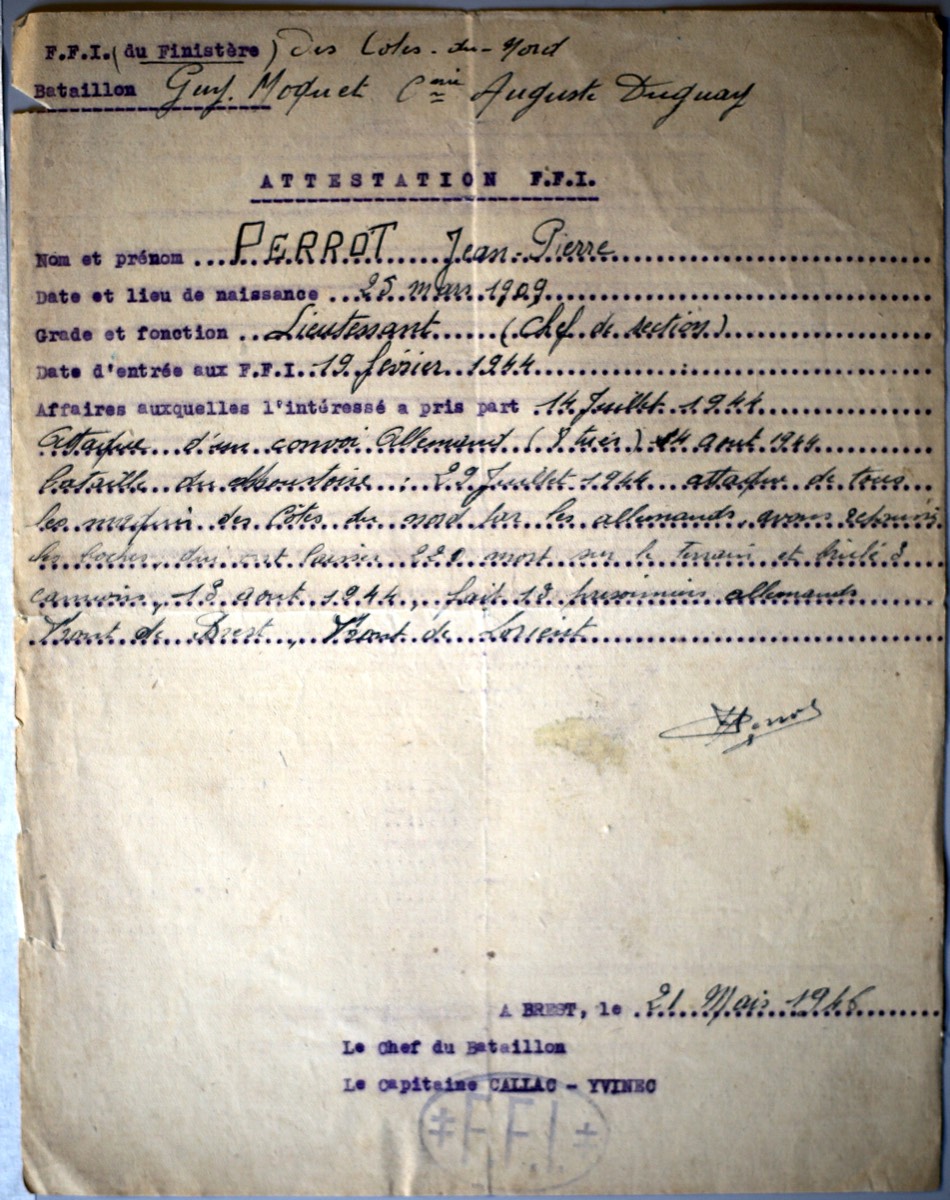 F.F.I. (du Finistère) Des Côtes-du-Nord
Bataillon Guy Moquet Cnie Auguste Duguay
ATTESTATION F.F.I.
Nom et prénom ... PERROT ... Jean-Pierre
Date et lieu de naissance ... 25 mars 1909
Grade et fonction .. Lieutenant (Chef de section)
Date d'entrée aux F.F.I. .. 19 février 1944
Affaires auxquelles l'intéressé a pris part . 14 Juillet 1944
Attaque d'un convoi Allemand ( tués) 14 aout 1944
bataille du Moustoire : 29 Juillet 1944 attaque de tous
les maquis des Côtes du nord par les allemands, avons
les boches qui ont laisser 220 mort sur le terrain et brulé 3
camions, 13 aout 1944, fait 13 prisonniers allemands
Front de Brest, Front de Lorient
A BREST, le . 21 Mars 1946
Le Chef du Bataillon
Le Capitaine CALLAC - YVINEC
‡ FFI ‡